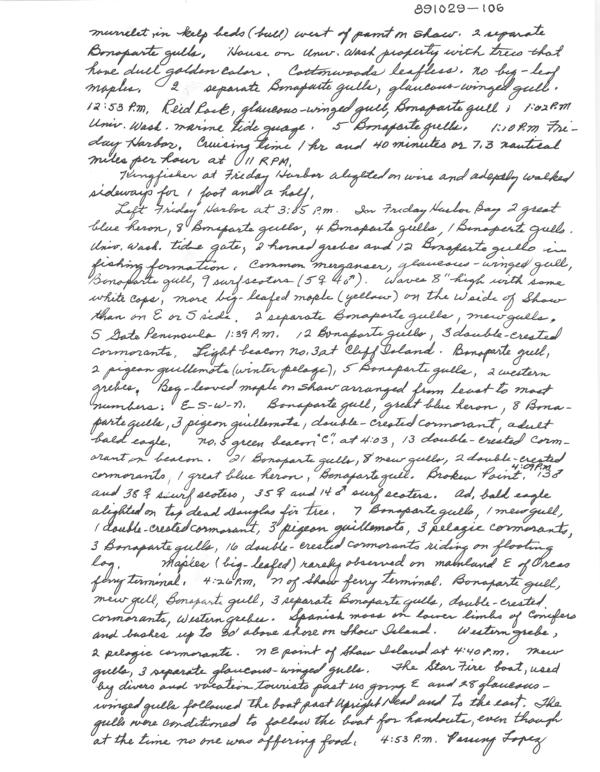 891029-106
murrelet in kelp beds (bull) west of point on Shaw. 2 separate
Bonaparte gulls. House on Univ. Wash property with trees that
have dull golden color. Cottonwoods leafless. No big-leaf
maples. 2 separate Bonaparte gulls, glaucous-winged gull.
12:53 P.M. Reid Rock, glaucous-winged gull, Bonaparte gull; 1:02 P.M
Univ. Wash. marine tide guage. 5 Bonaparte gulls. 1:10 P.M Fri-
day Harbor. Cruising time 1 hr and 40 minutes or 7.3 nautical
miles per hour at 11 RPM.
Kingfisher at Friday Harbor alighted on wire and adeptly walked
sideways for 1 foot and a half.
Left Friday Harbor at 3:05 P.m. In Friday Harbor Bay 2 great
blue heron, 8 Bonaparte gulls, 4 Bonaparte gulls, 1 Bonaparte gulls.
Univ. Wash. tide gate, 2 horned grebes and 12 Bonaparte gulls in
fishing formation. Common merganser, glaucous-winged gull,
Bonaparte gull, 9 surf scoters (5♀ 4♂). Waves 8" high with some
white caps, more big-leafed maple (yellow) on the W side of Shaw
than on E or S side. 2 separate Bonaparte gulls, mew gulls.
5 Gate Peninsula 1:39 P.M. 12 Bonaparte gulls, 3 double-crested
cormorants. Light beacon no. 3 at Cliff Island. Bonaparte gull,
2 pigeon guillemots (winter pelage), 5 Bonaparte gulls, 2 western
grebes. Big-leaved maple on Shaw arranged from least to most
numbers: E-S-W-N. Bonaparte gull, great blue heron, 8 Bona-
parte gulls, 3 pigeon guillemots, double-crested cormorant, adult
bald eagle. No. 5 green beacon "C" at 4:03, 13 double-crested corm-
orant on beacon. 21 Bonaparte gulls, 8 mew gulls, 2 double-crested
cormorants, 1 great blue heron, Bonaparte gull. Broken Point, 4:09 P.M. 13♂
and 38♀ surf scoters, 35♀ and 14♂ surf scoters. Ad. bald eagle
alighted on top dead Douglas fir tree. 7 Bonaparte gulls, 1 mew gull,
1 double-crested cormorant, 3 pigeon guillemots, 3 pelagic cormorants,
3 Bonaparte gulls, 16 double-crested cormorants riding on floating
log. Maples (big-leafed) rarely observed on mainland E of Orcas
ferry terminal. 4:26 P.M. N of Shaw ferry terminal. Bonaparte gull,
mew gull, Bonaparte gull, 3 separate Bonaparte gulls, double-crested
cormorants, Western grebes. Spanish moss on lower limbs of Conifers
and bushes up to 20' above shore on Shaw Island. Western grebe,
2 pelagic cormorants. NE point of Shaw Island at 4:40 P.M. mew
gulls, 3 separate glaucous-winged gulls. The Star Fire boat, used
by divers and vacation tourists past us going E and 28 glaucous-
winged gulls followed the boat past Upright Head and to the east. The
gulls were conditioned to follow the boat for handouts, even though
at the time no one was offering food. 4:53 P.M. Passing Lopez